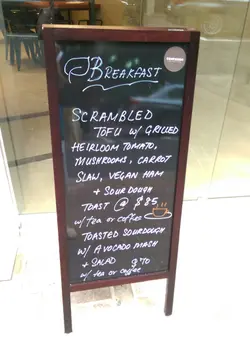 BREAKFAST
SCRAMBLED
TOFU w/ GRILLED
HEIRLOOM TOMATO,
MUSHROOMS, CARROT
SLAW, VEGAN HAM
+ SOURDOUGH
TOAST @ $85
w/ tea or coffee
TOASTED SOURDOUGH
w/ AVOCADO MASH
+ SALAD $70
w/ tea or coffee